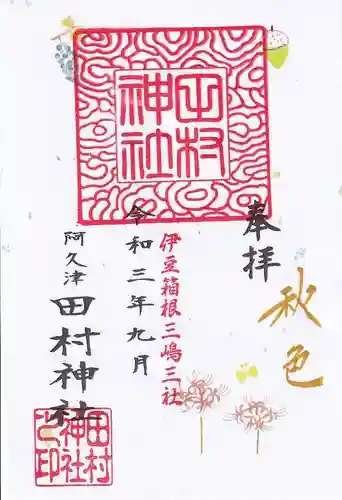 奉拝
秋色
田村
神社
伊豆箱根三嶋三社
令和三年九月
阿久津
田村神社
田村
神社
之印